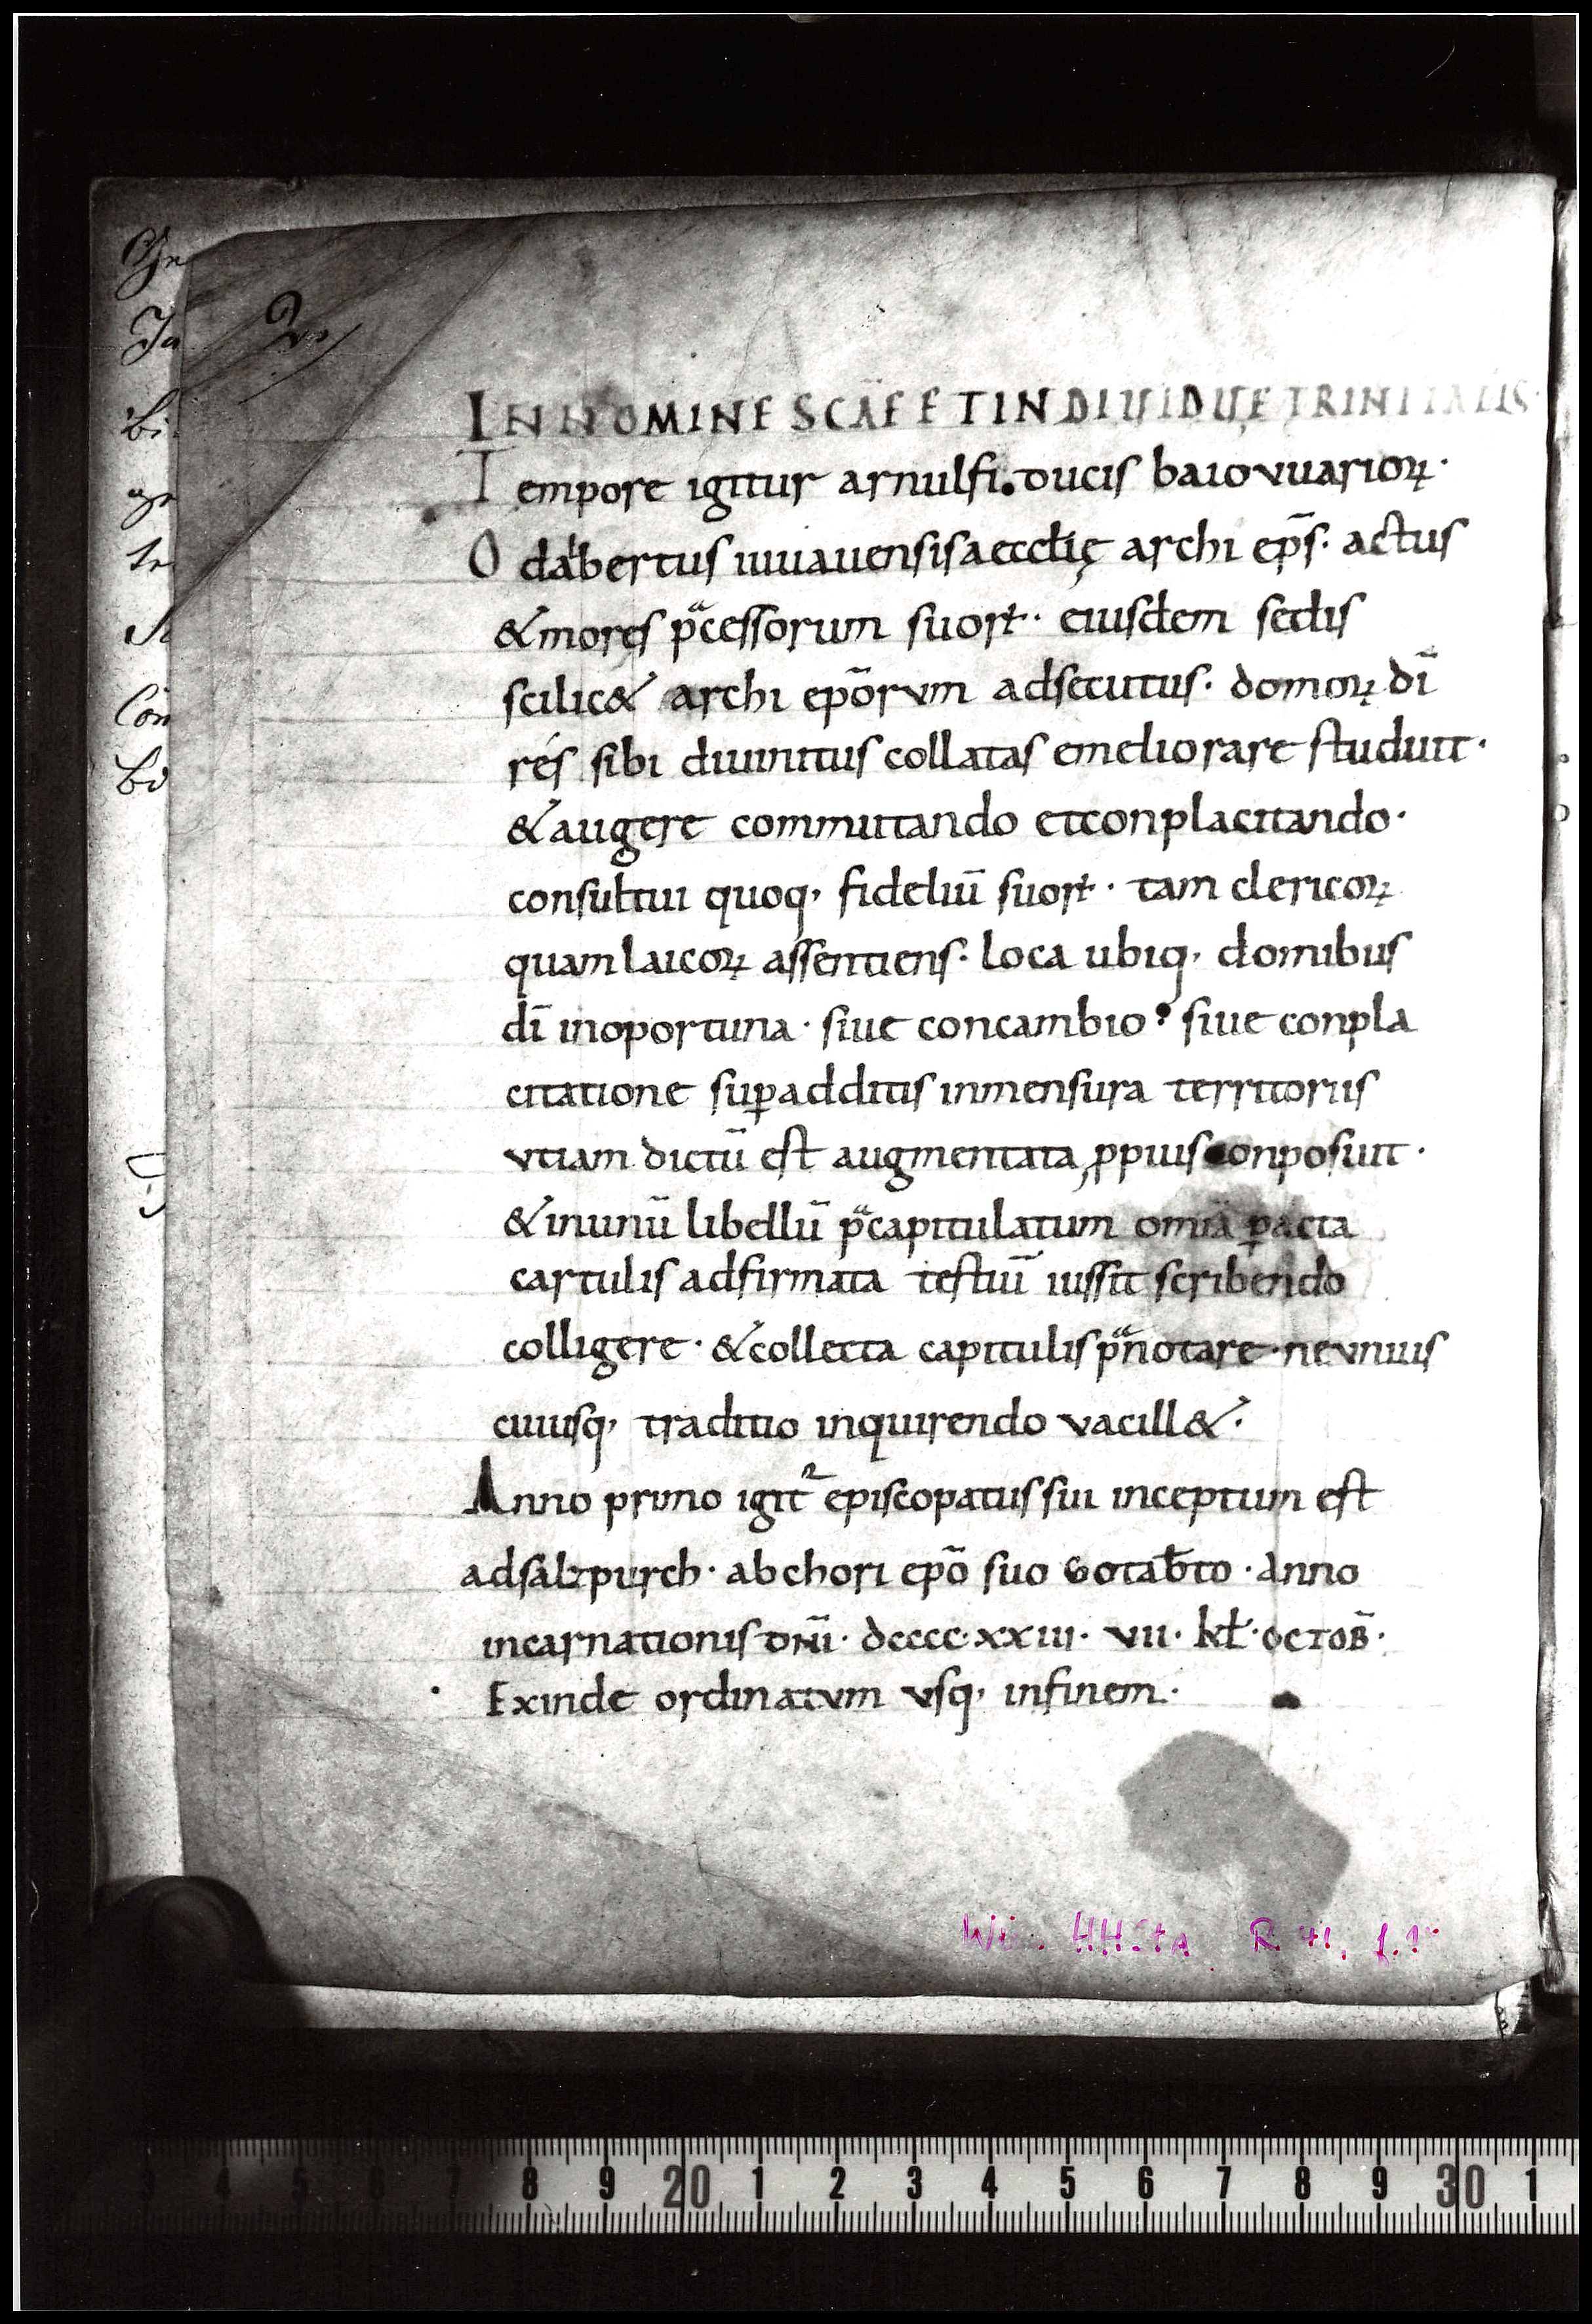 IN NOMINE SCÃE ET INDIUIDUE TRINITATIS
Tempore igitur arnulfi. ducis baiovuarioꝝ·
Odalbertus iuuauensis aeccłię archi ep̄s· actus
& mores p̃cessorum suoꝝ· eiusdem sedis
scilic& archi epõrvm adsecutus· domoꝝ dī
rés sibi diuinitus collatas emeliorare studuit·
& augere commutando et conplacitando·
consultui quoq, fideliū suoꝝ· tam clericoꝝ
quam laicoꝝ assentiens· loca ubiq, domibus
dī inoportuna· siue concambio siue conpla
citatione suꝑadditis in mensura territoriis
vtiam dictū est augmentata ꝓpius conposuit·
& in unū libellū p̃capitulatum omīa ꝑacta
cartulis adfirmata testiū iussit scribendo
colligere· & collecta capitulis p̃notare· ne vnius
cuiusq, traditio inquirendo vacill&·
Anno primo igit² episcopatus sui inceptum est
ad salzpurch· ab chori epõ suo Cotab̄to· Anno
incarnationis dñi· dcccc·xxiii· vii· kł· octob̄·
Exinde ordinatvm vsq, in finem·
3 4 5 6 7 8 9 20 1 2 3 4 5 6 7 8 9 30 1